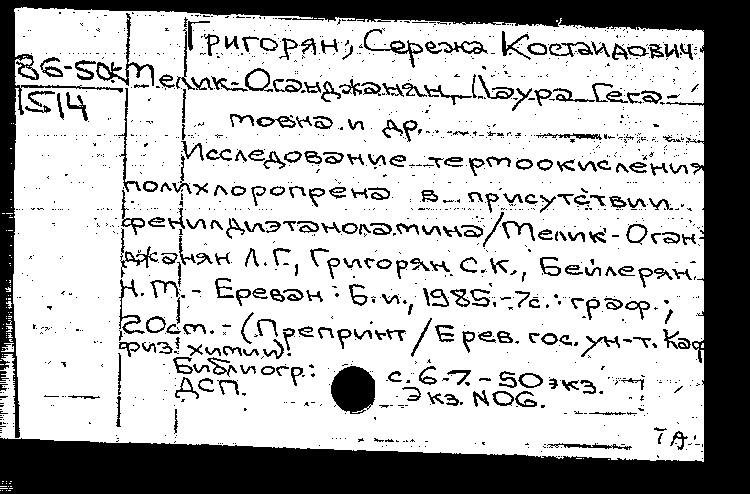 Григорян, Сережа Костаидович
86-50к Мелик-Оганджанян, Лаура Гега-
1514
мовна и др.
Исследование термоокисления
полихлоропрена в присутствии
фенилдиэтаноламина/Мелик-Оган-
джанян Л.Г., Григорян С.К., Бейлерян
Н.М. - Ереван : Б.и., 1985.-7с. : граф. ;
20см. - (Препринт / Ерев. гос. ун-т. Каф
физ. химии).
Библиогр.: с. 6-7. - 50 экз.
ДСП. Экз. N06.